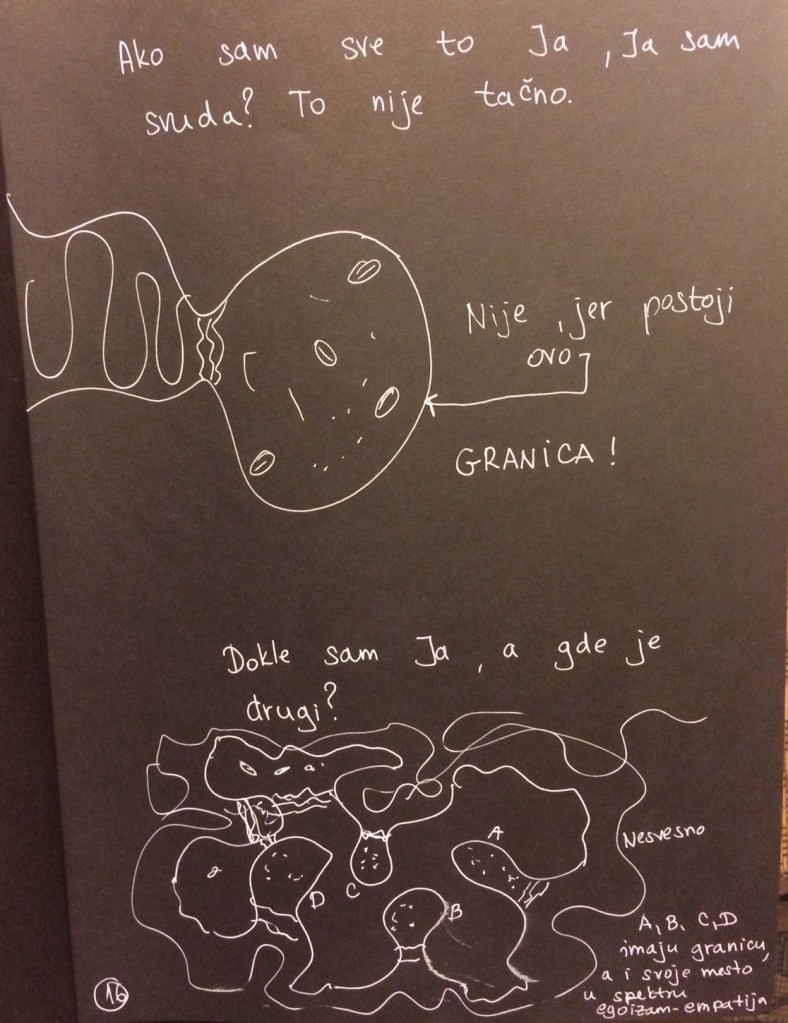 Ako sam sve to Ja, Ja sam
svuda? To nije tačno.
Nije, jer postoji
ovo
GRANICA!
Dokle sam Ja, a gde je
drugi?
A
Nesvesno
C
D
B
A, B, C, D
imaju granicu,
a i svoje mesto
u spektru
egoizam-empatija
16